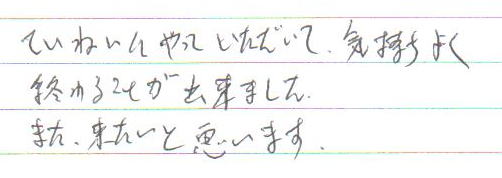 ていねいにやっていただいて、気持ちよく
終わることが出来ました。
また、来たいと思います。